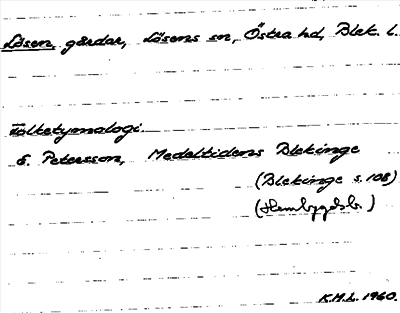 Lösen, gårdar, Lösens sn, Östra hd, Blek. l.
Folketymologi.
S. Petersson, Medeltidens Blekinge
(Blekinge s. 108)
(Hembygdsb.)
K.H.L. 1960.